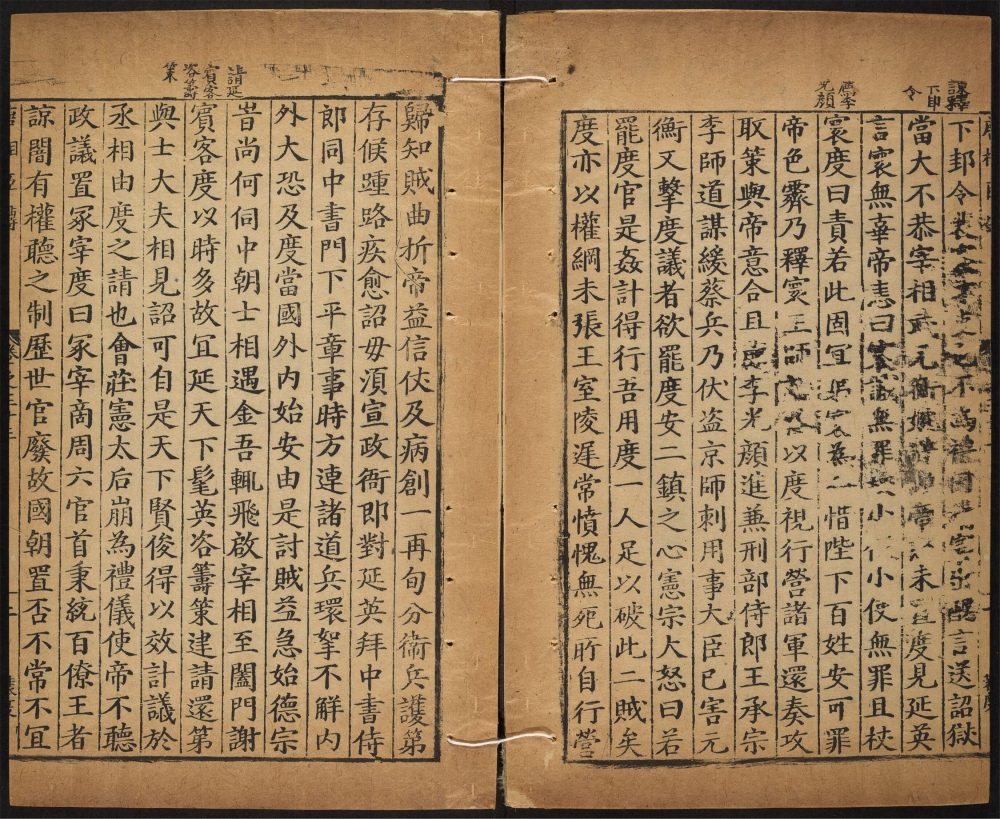 課釋
下邽
令
薦李
光顏
下邽令裴
當大不恭宰相武元衡 帝 未 度見延英
言寰無辜帝恚曰寰誠無罪杖小 小使無罪且杖
寰度曰責若此固宜 惜陛下百姓安可罪
帝色霽乃釋寰王師 以度視行營諸軍還奏攻
取策與帝意合且 李光顏進兼刑部侍郎王承宗
李師道謀緩蔡兵乃伏盜京師刺用事大臣已害元
衡又擊度議者欲罷度安二鎮之心憲宗大怒曰若
罷度官是姦計得行吾用度一人足以破此二賊矣
度亦以權綱未張王室陵遲常憤愧無死所自行營
請延
賓客
咨籌
策
歸知賊曲折帝益信仗及病創一再旬分衛兵護第
存候踵路疾愈詔毋須宣政衙即對延英拜中書侍
郎同中書門下平章事時方連諸道兵環挐不解內
外大恐及度當國外內始安由是討賊益急始德宗
嘗尚何伺中朝士相遇金吾輒飛啟宰相至闔門謝
賓客度以時多故宜延天下髦英咨籌策建請還第
與士大夫相見詔可自是天下賢俊得以效計議於
丞相由度之請也會莊憲太后崩為禮儀使帝不聽
政議置冢宰度曰冢宰商周六官首秉統百僚王者
諒闇有權聽之制歷世官廢故國朝置否不常不宜